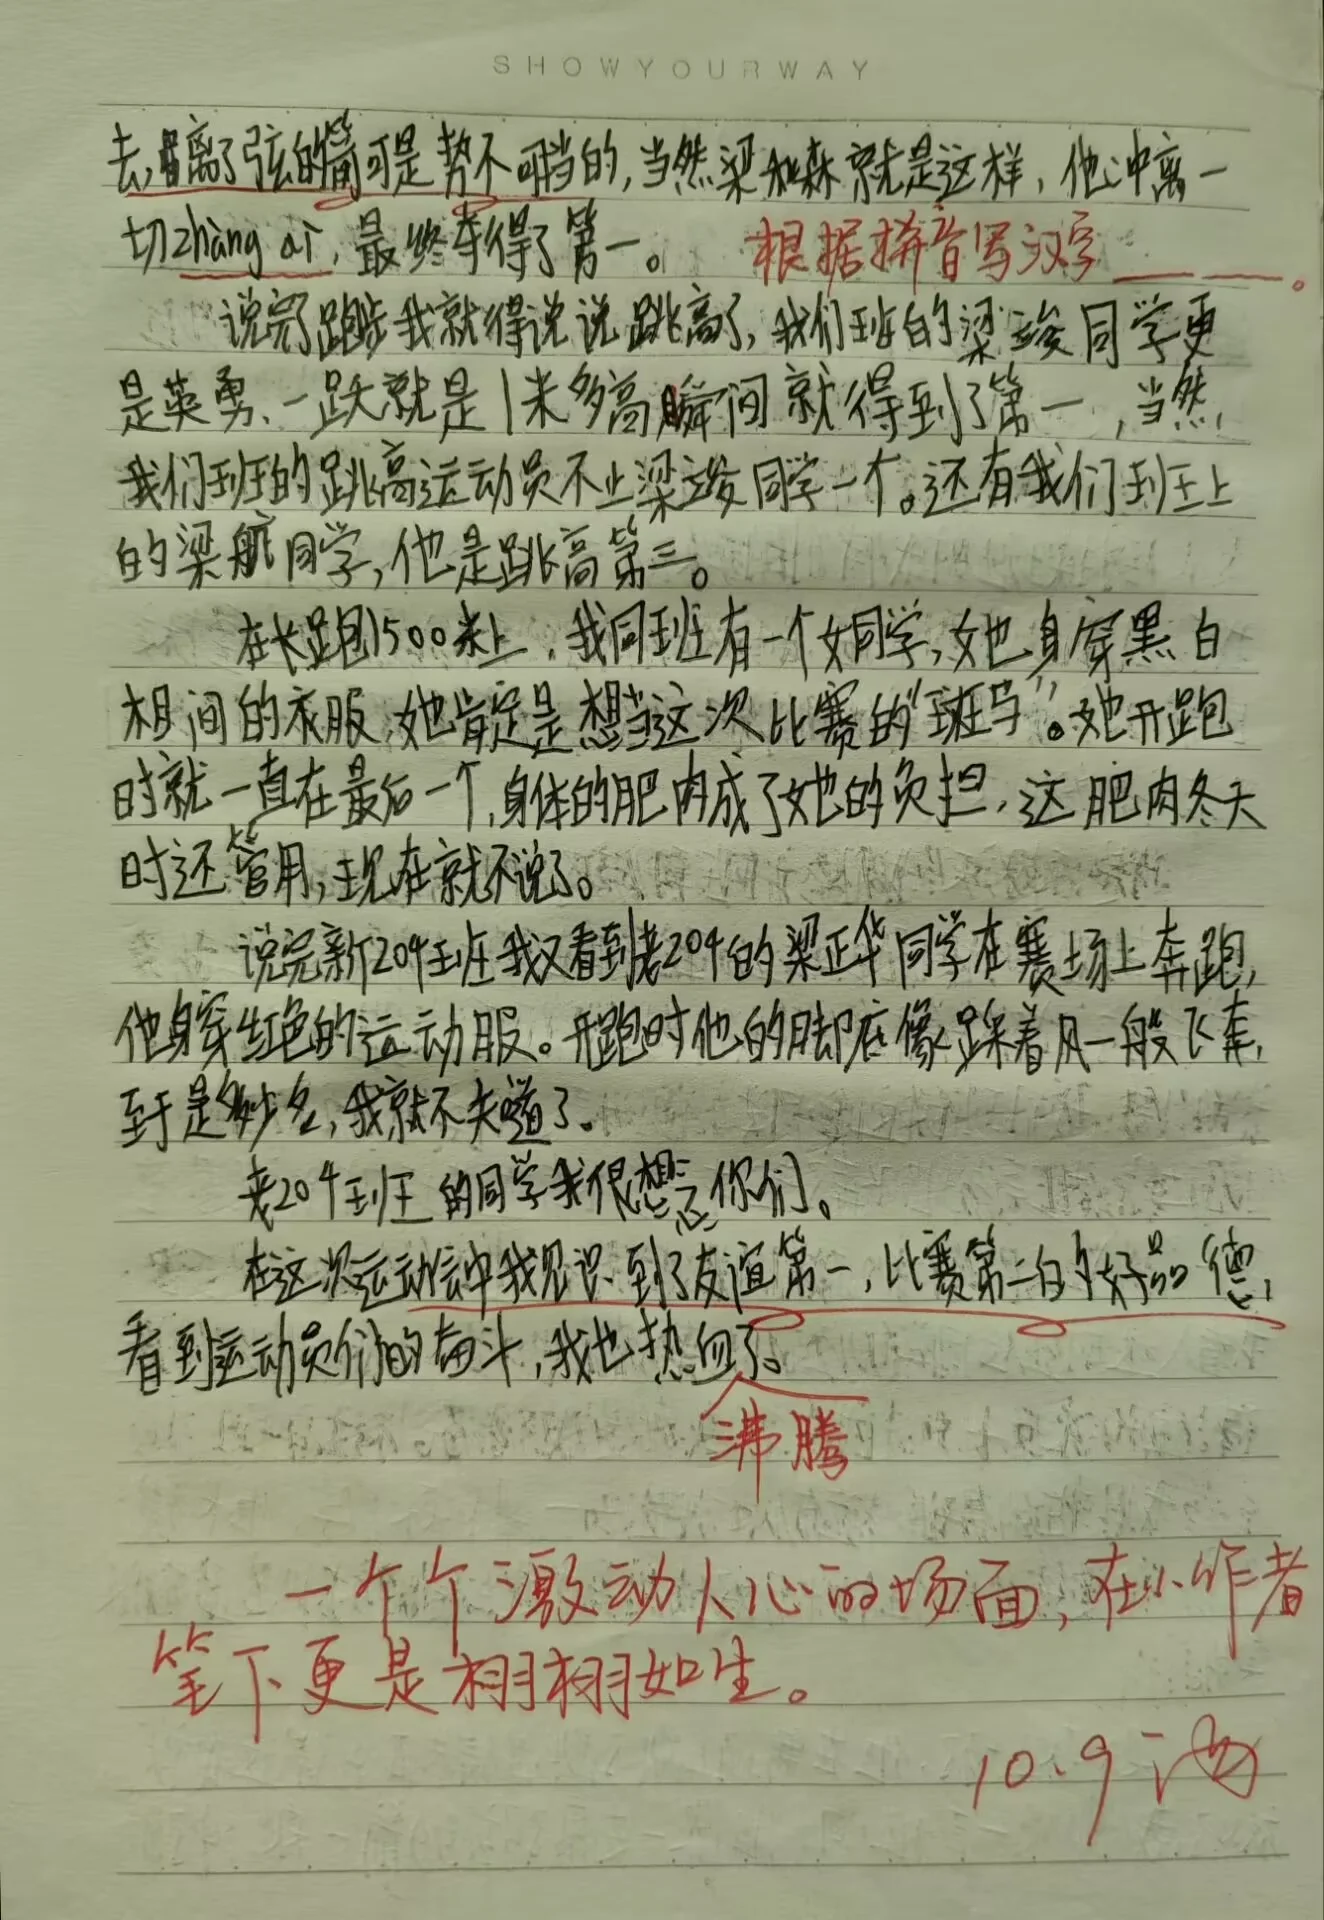 SHOWYOURWAY
去,离了弦的箭可是势不可挡的,当然梁和森就是这样,他冲离一
切zhàng ài,最终夺得了第一。 根据拼音写汉字
说完了跑步我就得说说跳高了,我们班的梁竣同学更
是英勇、一跃就是1米多高瞬间就得到了第一,当然,
我们班的跳高运动员不止梁竣同学一个。还有我们班上
的梁航同学,他是跳高第三。
在长跑1500米上,我同班有一个女同学,她身穿黑白
相间的衣服,她肯定是想当这次比赛的“斑马”。她开跑
时就一直在最后一个,身体的肥肉成了她的负担,这肥肉冬天
时还管用,现在就不说了。
说完新204班在我又看到老204的梁正华同学在赛场上奔跑,
他身穿红色的运动服。开跑时他的脚底像踩着风一般飞奔,
至于是多少名,我就不知道了。
老204班的同学我很想念你们。
在这次运动会中我见识到了友谊第一,比赛第二的好品德,
看到运动员们的奋斗,我也热血了。
沸腾
一个个激动人心的场面,在小作者
笔下更是栩栩如生。
10.9